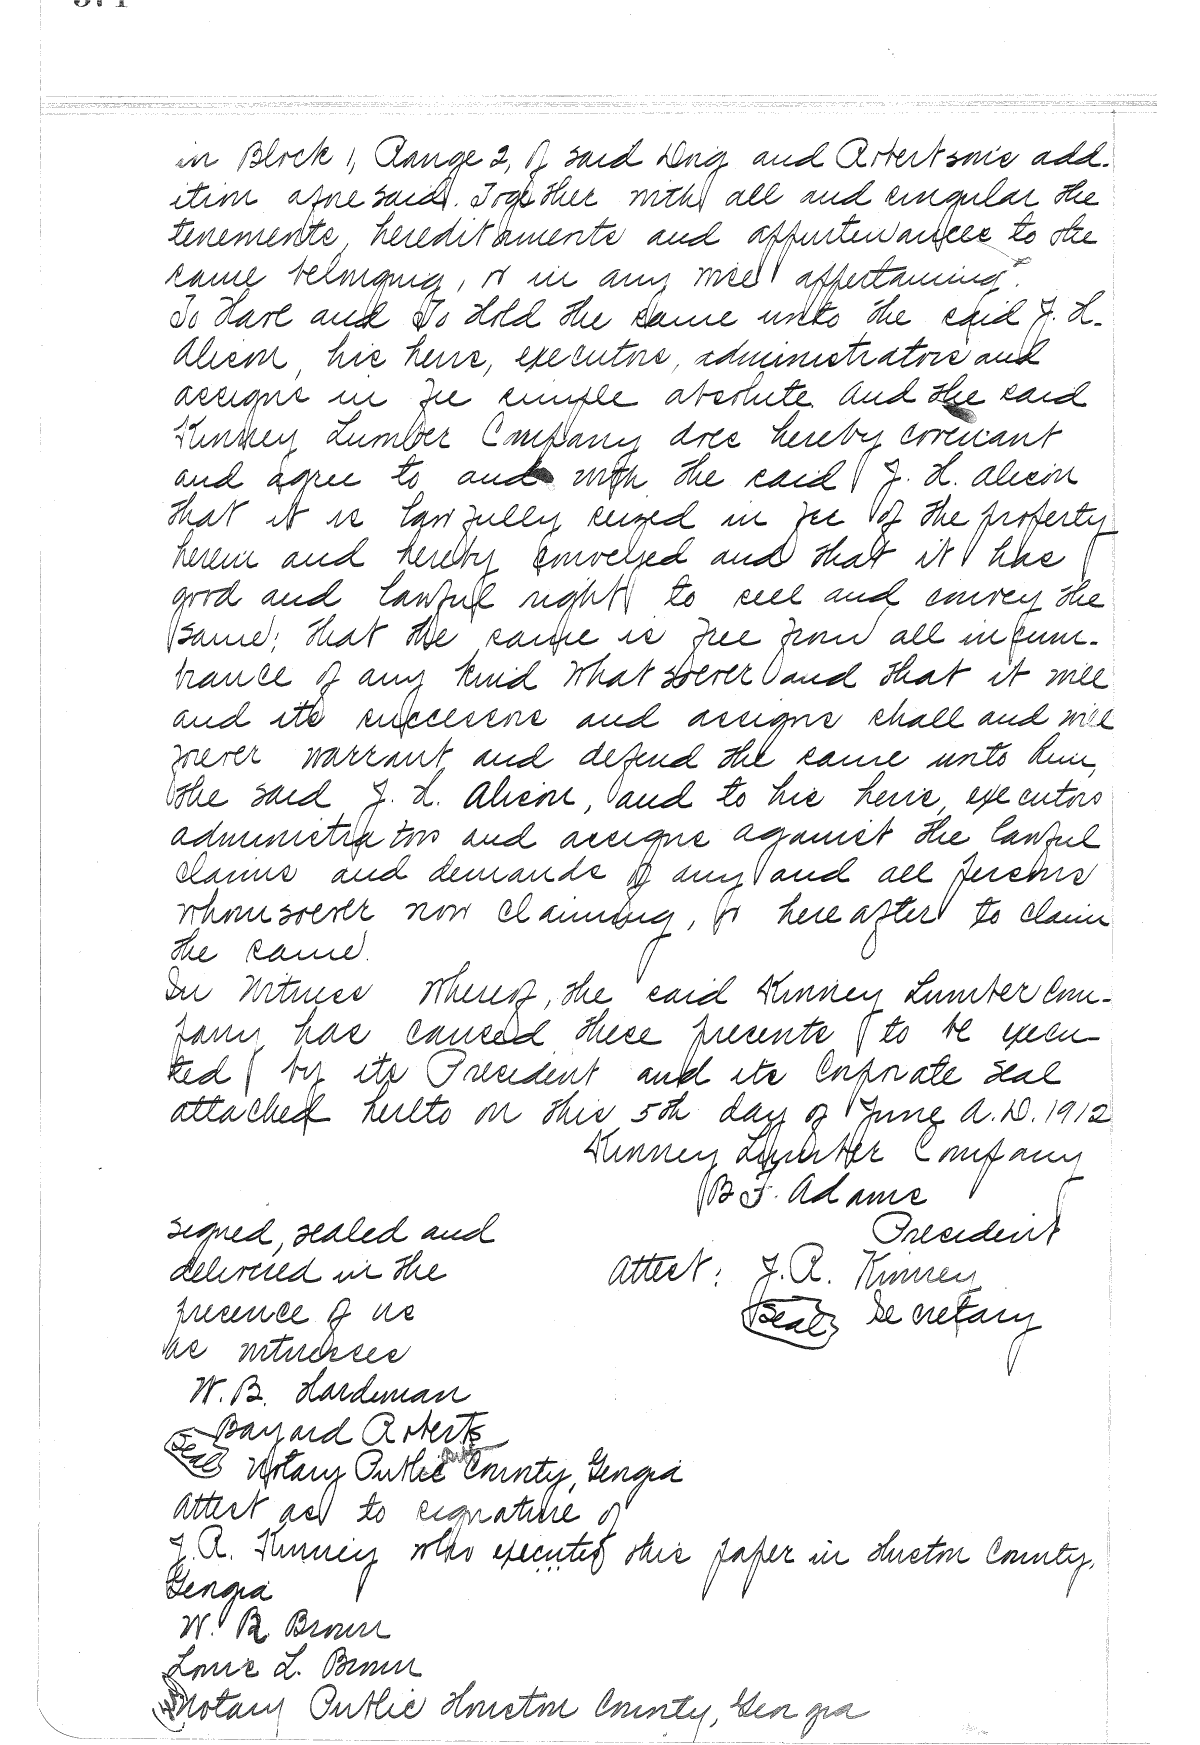 in Block 1, Range 2, of said King and Robertson's add-
ition aforesaid. Together with all and singular the
tenements, hereditaments and appurtenances to the
same belonging, or in any wise appertaining.
To Have and To Hold the same unto the said J. H.
Alison, his heirs, executors, administrators and
assigns in fee simple absolute. And the said
Kinney Lumber Company does hereby covenant
and agree to and with the said J. H. Alison
that it is lawfully seized in fee of the property
herein and hereby conveyed and that it has
good and lawful right to sell and convey the
same; that the same is free from all incum-
brance of any kind whatsoever and that it will
and its successors and assigns shall and will
forever warrant and defend the same unto him,
the said J. H. Alison, and to his heirs, executors
administrators and assigns against the lawful
claims and demands of any and all persons
whomsoever now claiming, or hereafter to claim
the same.
In Witness Whereof, the said Kinney Lumber Com-
pany has caused these presents to be execu-
ted by its President and its Corporate Seal
attached hereto on this 5th day of June A.D. 1912
Kinney Lumber Company
B F. Adams
President
Attest: J. R. Kinney
Seal Secretary
Signed, sealed and
delivered in the
presence of us
as witnesses
W. B. Hardeman
Bayard Roberts
Seal Notary Public County, Georgia
Attest as to signature of
J. R. Kinney who executed this paper in Huston County,
Georgia
W. R Brown
Louis L. Brown
Notary Public Houston County, Georgia